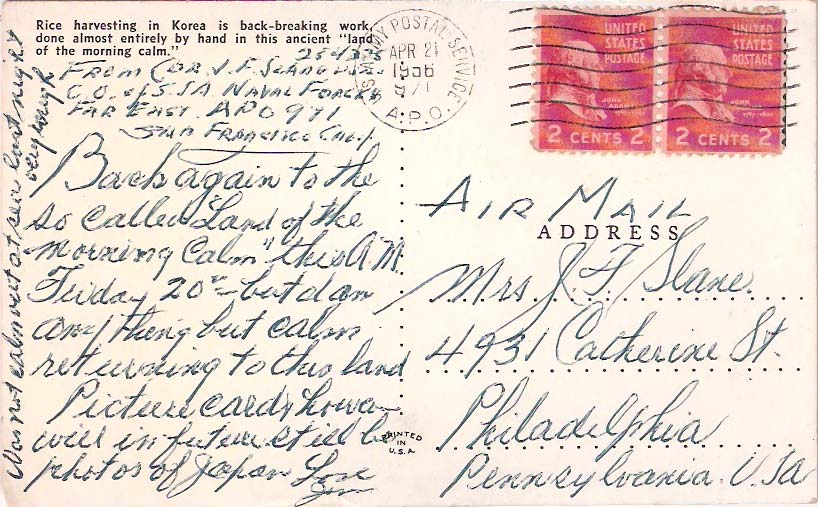 Rice harvesting in Korea is back-breaking work,
done almost entirely by hand in this ancient "land
of the morning calm."
From CDR. J. F. Slane
C.O. of S.S.A. Naval Forces
Far East. APO 971
San Francisco Calif.
Back again to the
so called "Land of the
morning Calm" this A.M.
Friday 20th - but I am
anything but calm
returning to this land
Picture cards howe-
will in future still be
photos of Japan Love
Jim
Was not calm but at sea last night
very rough
ARMY POSTAL SERVICE
APR 21
1956
971
A.P.O.
UNITED
STATES
POSTAGE
JOHN
ADAMS
2 CENTS 2
UNITED
STATES
POSTAGE
JOHN
ADAMS
2 CENTS 2
Air Mail
ADDRESS
Mrs. J. F. Slane
4931 Catherine St.
Philadelphia
Pennsylvania. USA
PRINTED
IN
U.S.A.